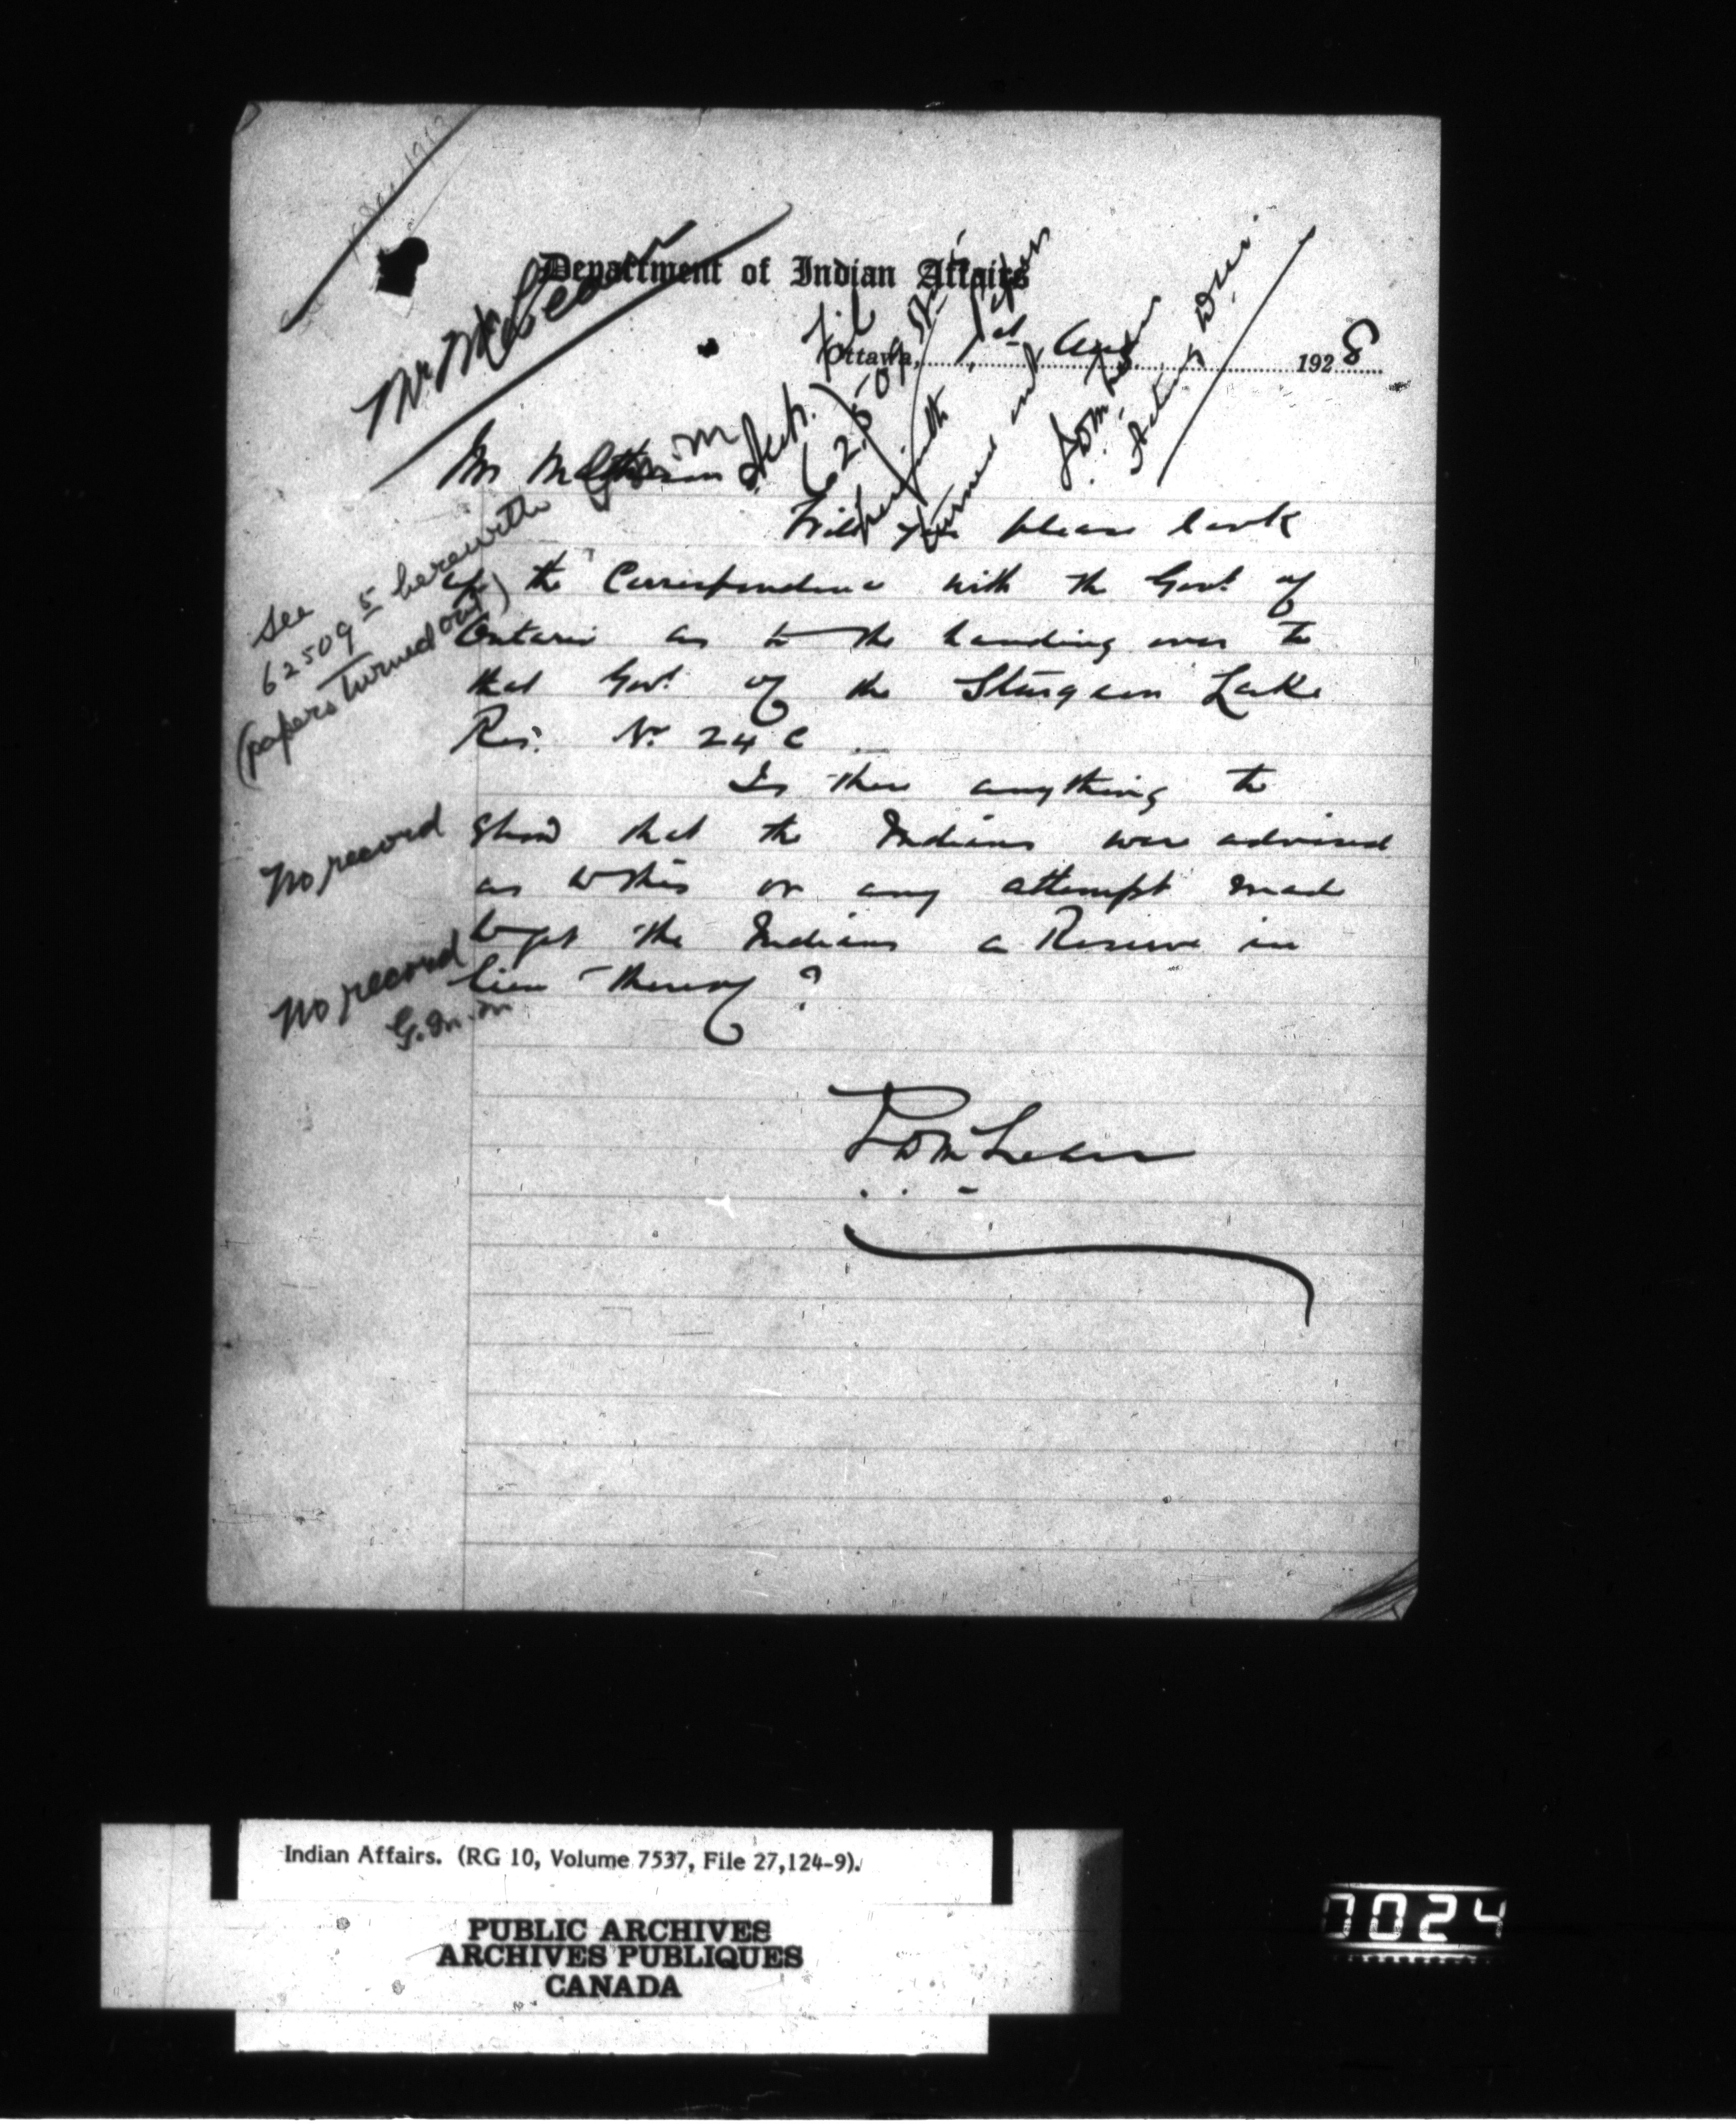 Department of Indian Affairs
Ottawa, 1st Aug 1928
Mr McLean
Will you please look
up the Correspondence with the Govt of
Ontario as to the handing over to
that Govt of the Sturgeon Lake
Res. No 24 C
Is there anything to
show that the Indians were advised
as to this or any attempt made
to get the Indians a Reserve in
lieu thereof ?
See
62509-5 herewith
(papers turned out)
No record
No record
G.M.M
Indian Affairs. (RG 10, Volume 7537, File 27,124-9).
PUBLIC ARCHIVES
ARCHIVES PUBLIQUES
CANADA
0024